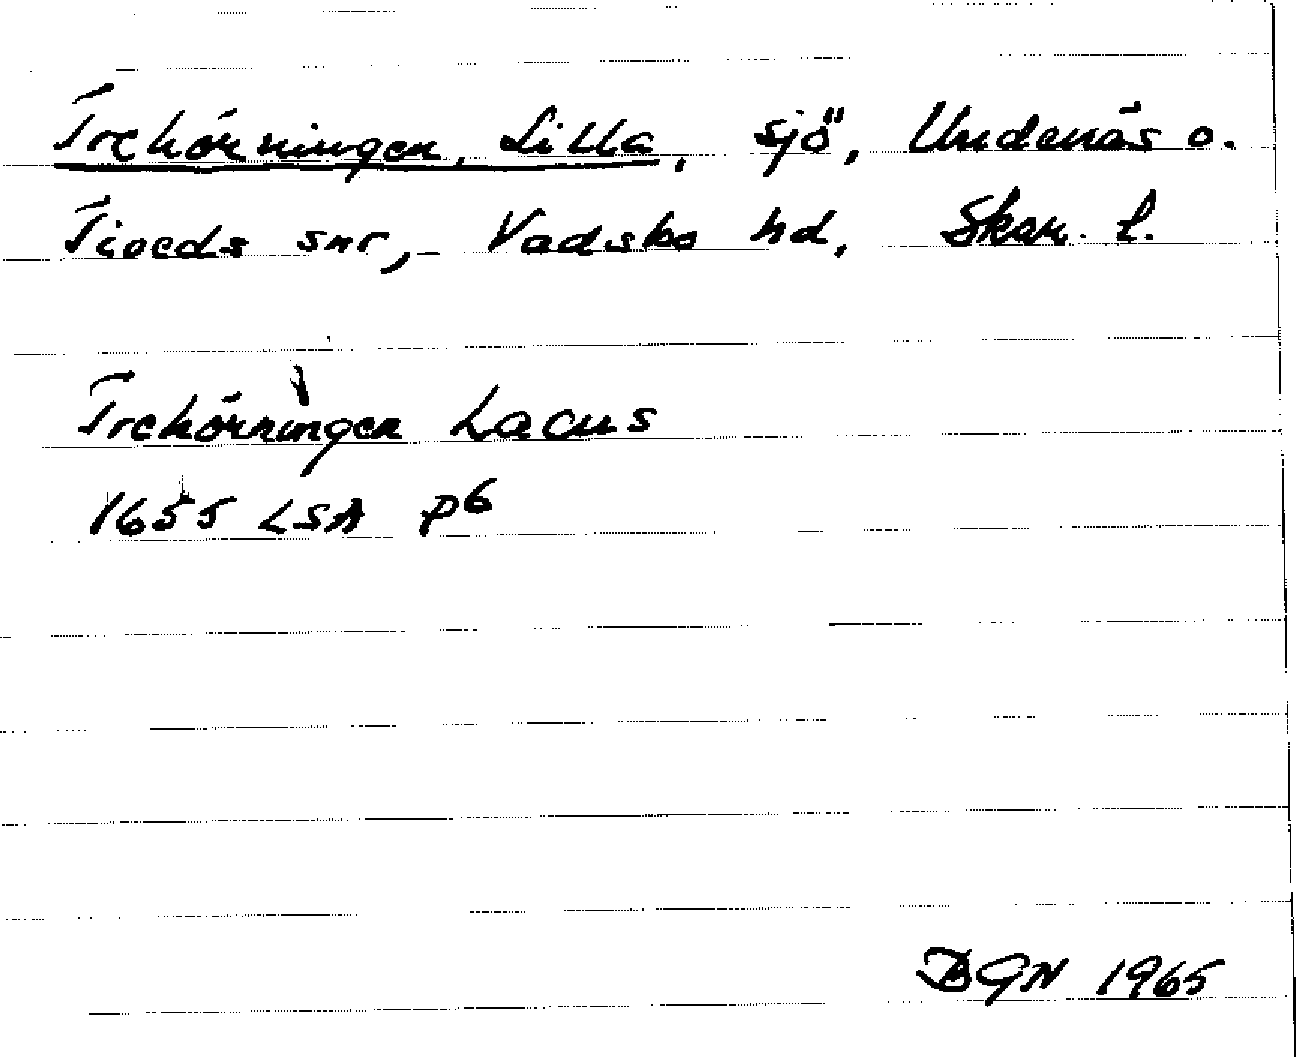 Trehörningen, Lilla, sjö, Undenäs o.
Tiveds snr, Vadsbo hd, Skar. l.
Trehörningen Lacus
1655 LSA P6
BGN 1965